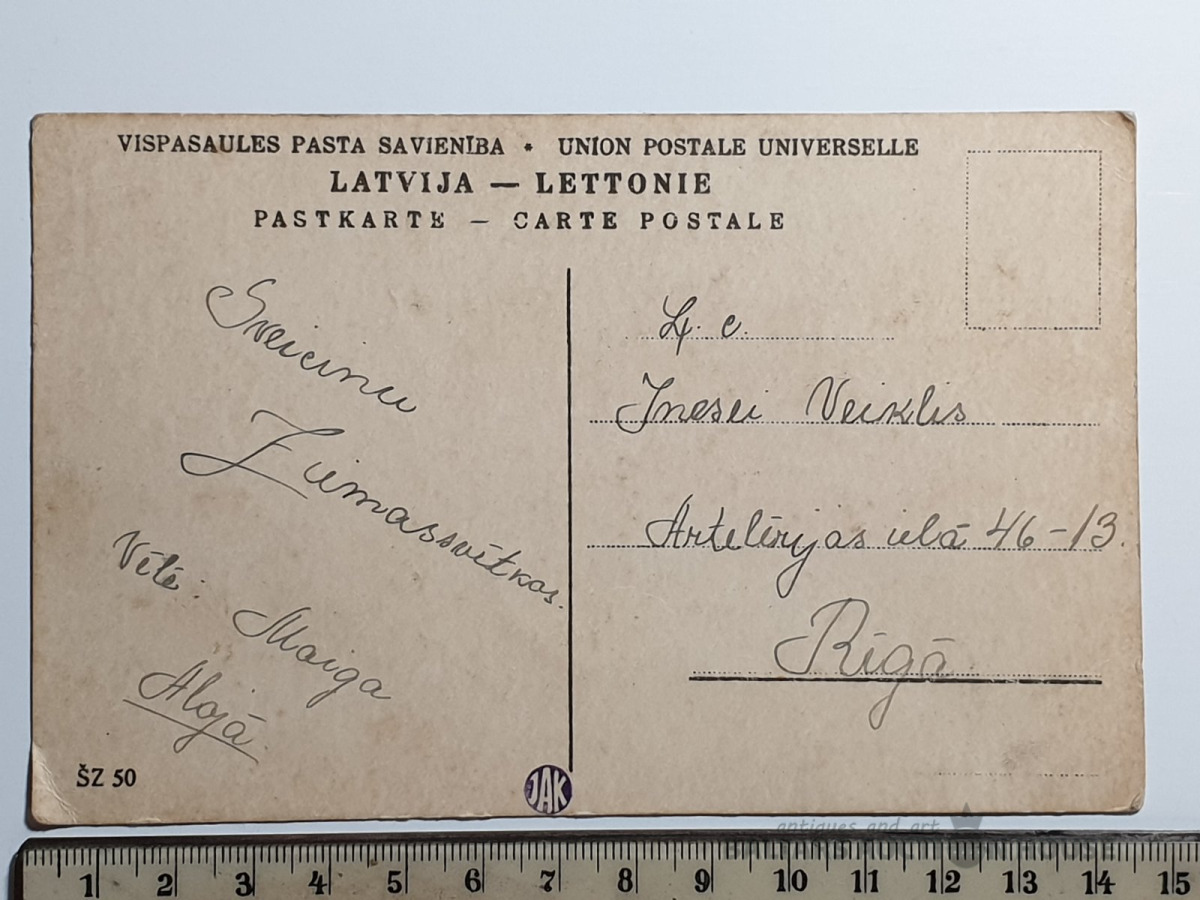 VISPASAULES PASTA SAVIENĪBA * UNION POSTALE UNIVERSELLE
LATVIJA — LETTONIE
PASTKARTE — CARTE POSTALE
Sveicinu
Ziemassvētkos.
Vēlē:
Maiga
Alojā
ŠZ 50
JAK
c.
Inesei Veiklis
Artelērijas ielā 46-13.
Rīgā
antiques and art
1 2 3 4 5 6 7 8 9 10 11 12 13 14 15